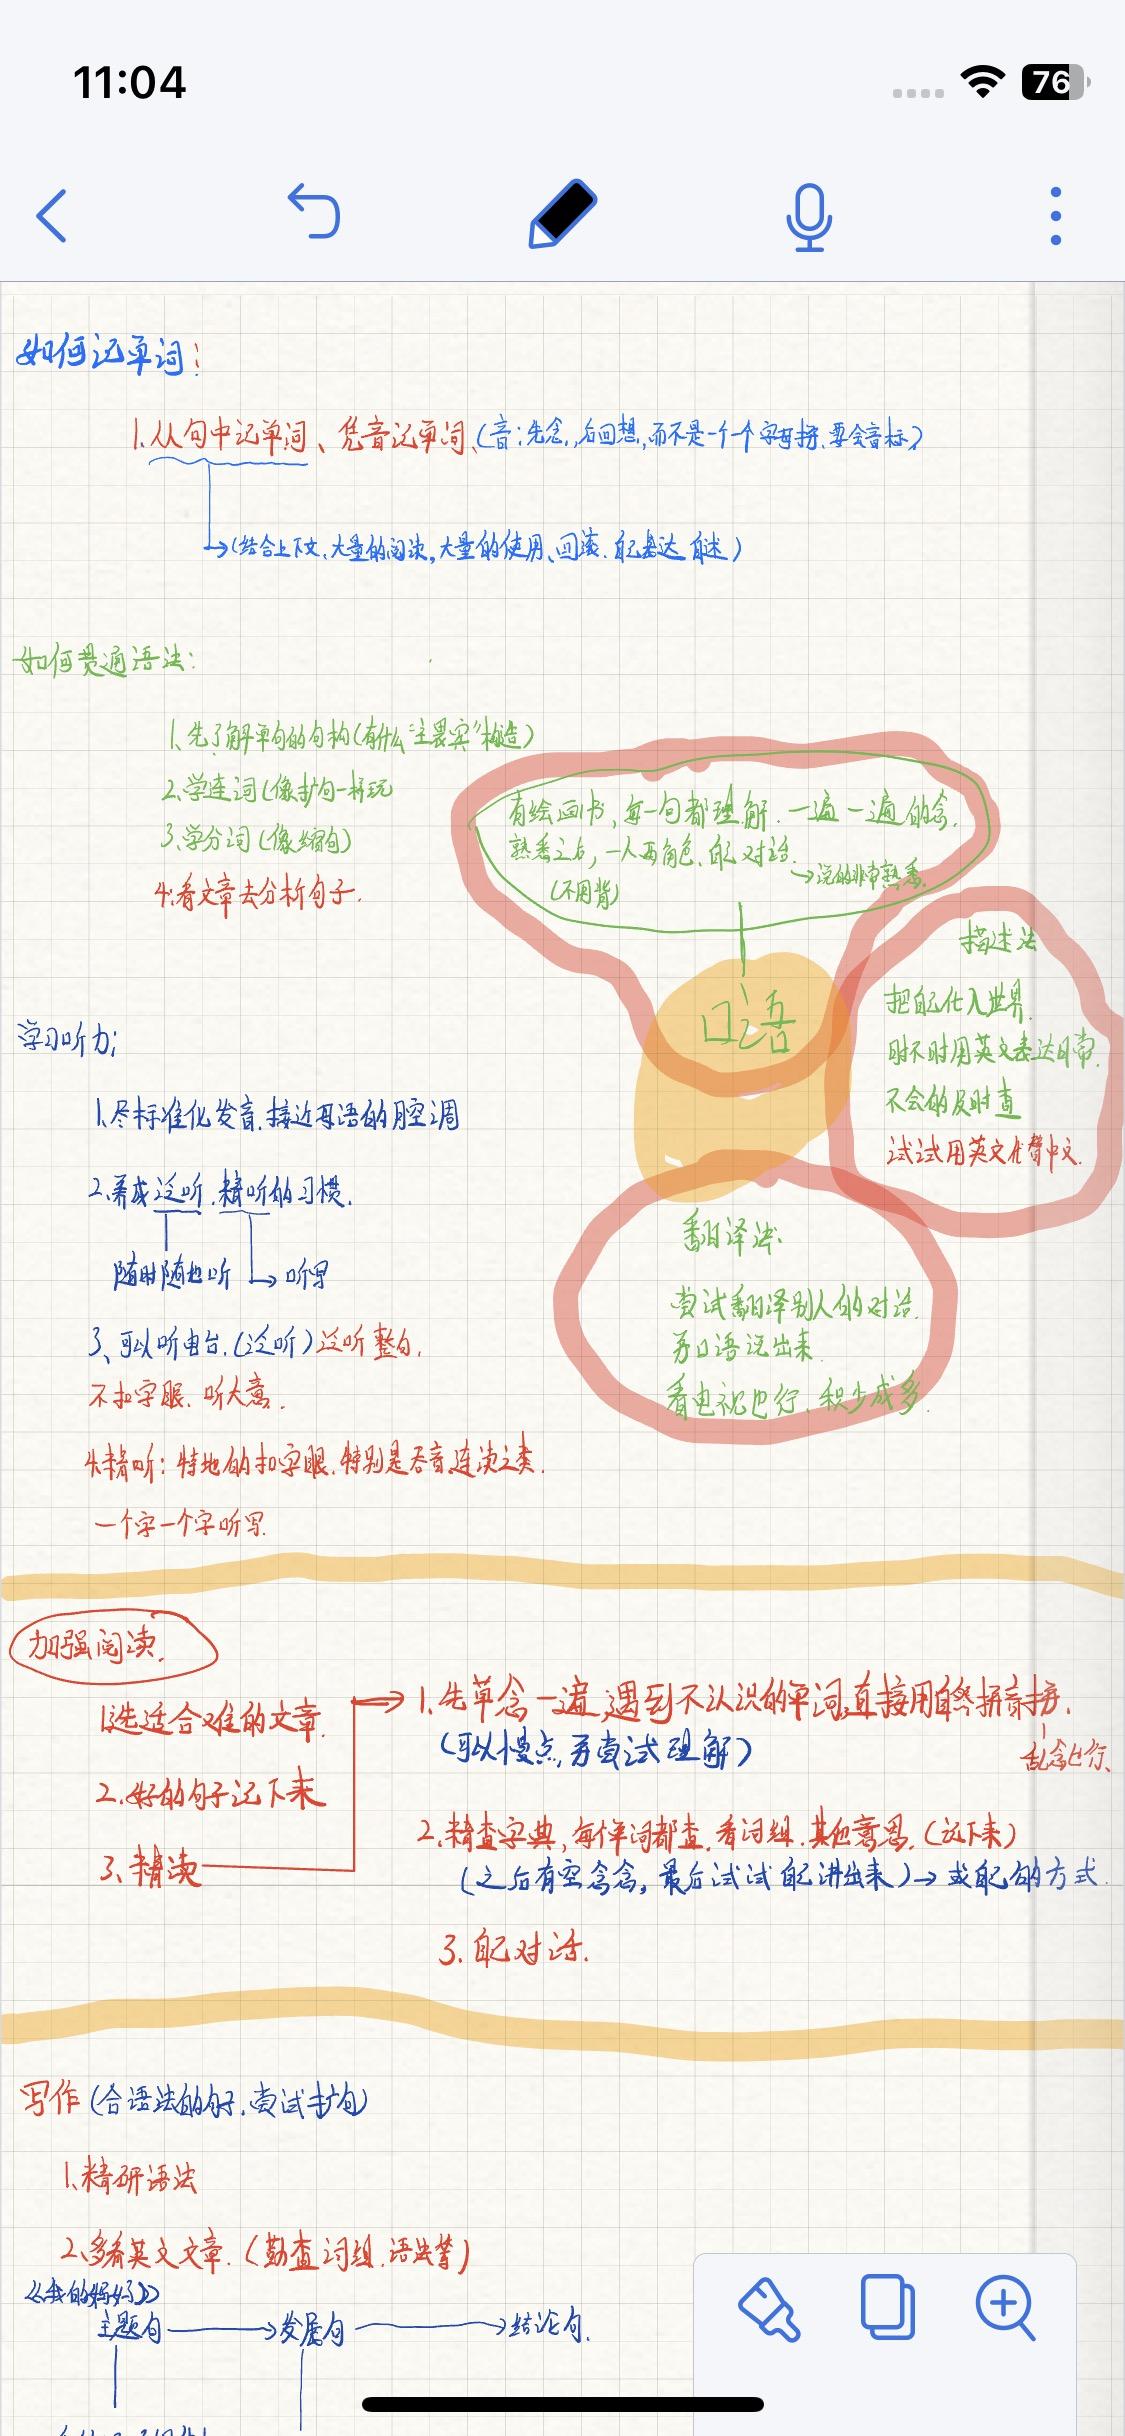 11:04
76
如何记单词：
1.从句中记单词、凭音记单词、(音：先念,后回想,而不是一个个字母拼.要会音标)
(结合上下文、大量的阅读,大量的使用、回滚.自己表达 自述)
如何贯通语法：
1、先了解单句的句构(有什么"主畏宾"构造)
2、学连词(像扩句一样玩
3、学分词(像缩句)
4.看文章去分析句子.
有绘画书,每一句都理解.一遍一遍的念.
熟悉之后,一人两角色、自己对话.
→说的非常熟悉.
(不用背)
口语
描述法
把自己代入世界.
时不时用英文表达日常.
不会的及时查
试试用英文代替中文.
翻译法.
尝试翻译别人的对话.
弄口语说出来.
看电视也行、积少成多.
学习听力;
1.尽标准化发音.接近母语的腔调
2.养成泛听.精听的习惯.
随时随地听 → 听写
3、可以听电台.(泛听)泛听整句.
不扣字眼、听大意.
4.精听：特地的扣字眼.特别是吞音,连读之类.
一个字一个字听写.
加强阅读.
1.选适合难的文章.
2.好的句子记下来
3、精读
1.先草念一遍,遇到不认识的单词,直接用自然拼音拼.
乱念也行、
(可以慢点,弄尝试理解)
2.精查字典,每个单词都查.看词组.其他意思.(记下来)
(之后有空念念,最后试试自己讲出来)→或自己的方式.
3.自己对话.
写作(合语法的句子.尝试扩句)
1.精研语法
2.多看英文文章.(勤查词组.语法等)
《我的妈妈》
主题句→发展句→结论句.